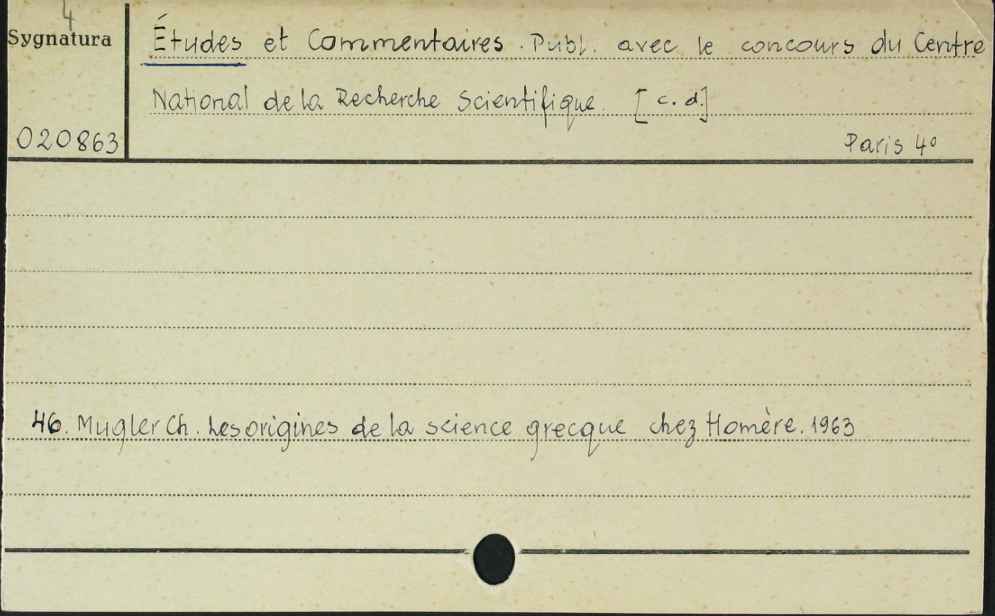 4
Sygnatura
Études et Commentaires. Publ. avec le concours du Centre
National de la Recherche Scientifique. [c.d.]
020863
Paris 4°
46. Mugler Ch. Les origines de la science grecque chez Homère. 1963